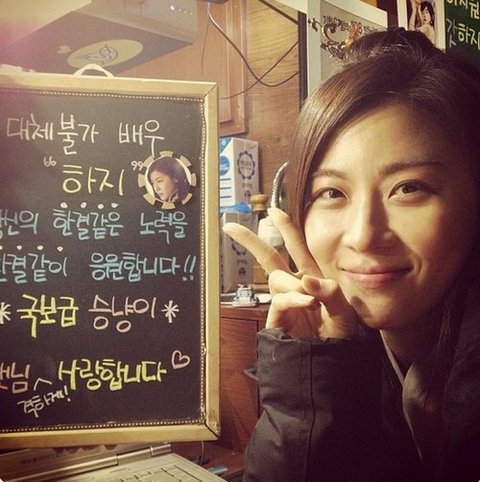 대체불가 배우
"하지 "
당신의 한결같은 노력을
한결같이 응원합니다!!
* 국보급 승냥이 *
사랑합니다 ♡
격하게!